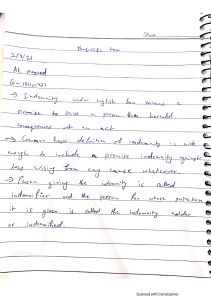 Date
Business law
2/9/21
AL
G-
→ Indemnity under english law means a
promise to save a person from harmful
consequences of an act
→ Common law definition of indemnity is wide
enough to include a promise indemnity against
loss arising from any cause whatsoever
→ Person giving the indemnity is called
indemnifier and the person for whose protection
it is given is called the indemnity holder
or indemnified.
Scanned with CamScanner